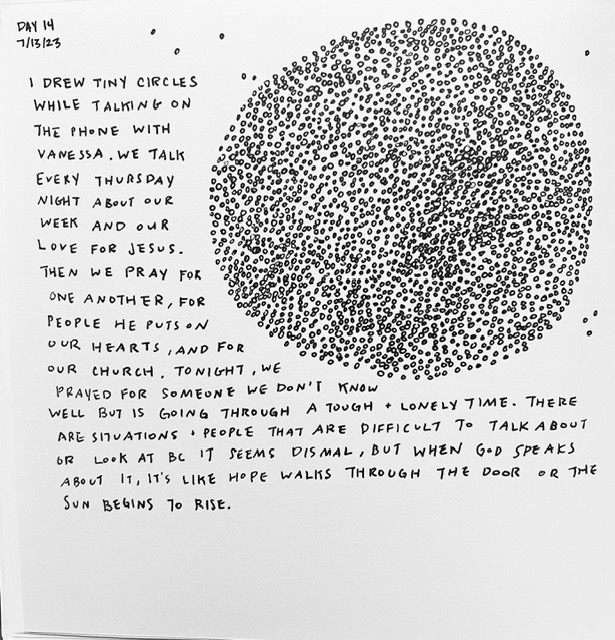 DAY 14
7/13/23
I DREW TINY CIRCLES
WHILE TALKING ON
THE PHONE WITH
VANESSA. WE TALK
EVERY THURSDAY
NIGHT ABOUT OUR
WEEK AND OUR
LOVE FOR JESUS.
THEN WE PRAY FOR
ONE ANOTHER, FOR
PEOPLE HE PUTS ON
OUR HEARTS, AND FOR
OUR CHURCH. TONIGHT, WE
PRAYED FOR SOMEONE WE DON'T KNOW
WELL BUT IS GOING THROUGH A TOUGH + LONELY TIME. THERE
ARE SITUATIONS + PEOPLE THAT ARE DIFFICULT TO TALK ABOUT
OR LOOK AT BC IT SEEMS DISMAL, BUT WHEN GOD SPEAKS
ABOUT IT, IT'S LIKE HOPE WALKS THROUGH THE DOOR OR THE
SUN BEGINS TO RISE.